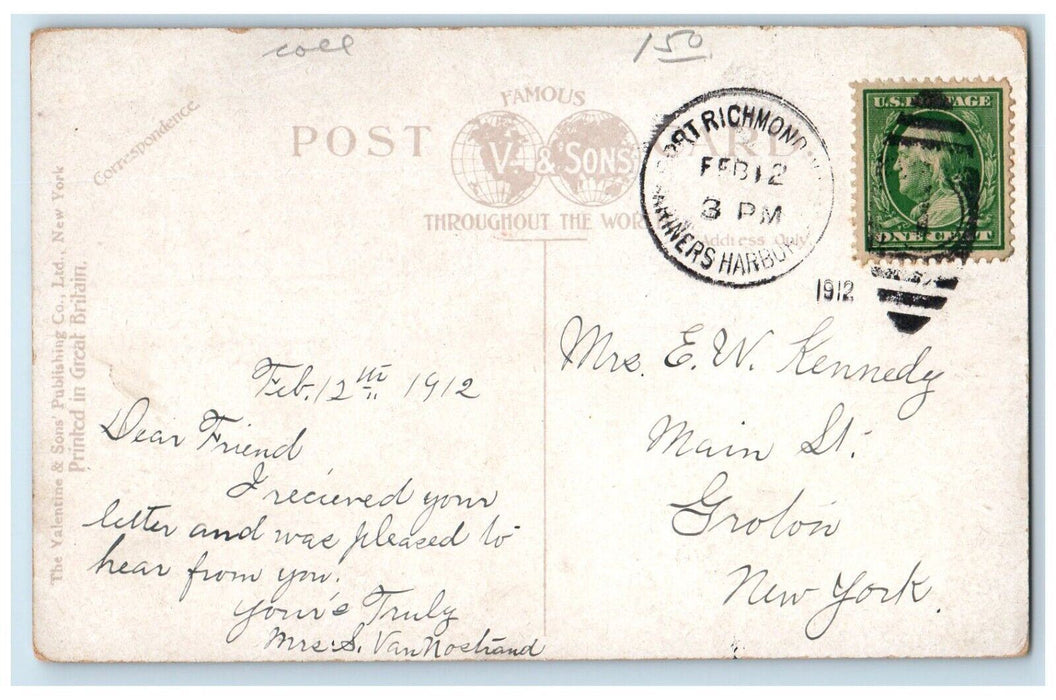 coll
150
Correspondence
FAMOUS
POST CARD
V. & SONS
THROUGHOUT THE WOR
Address Only
PORT RICHMOND
FEB 12
3 PM
MARINERS HARBOR
1912
U.S. POSTAGE
ONE CENT
The Valentine & Sons' Publishing Co., Ltd., New York
Printed in Great Britain.
Feb. 12th 1912
Dear Friend
I recieved your
letter and was pleased to
hear from you.
Your's Truly
Mrs. S. Van Nostrand
Mrs. E. W. Kennedy
Main St.
Groton
New York.